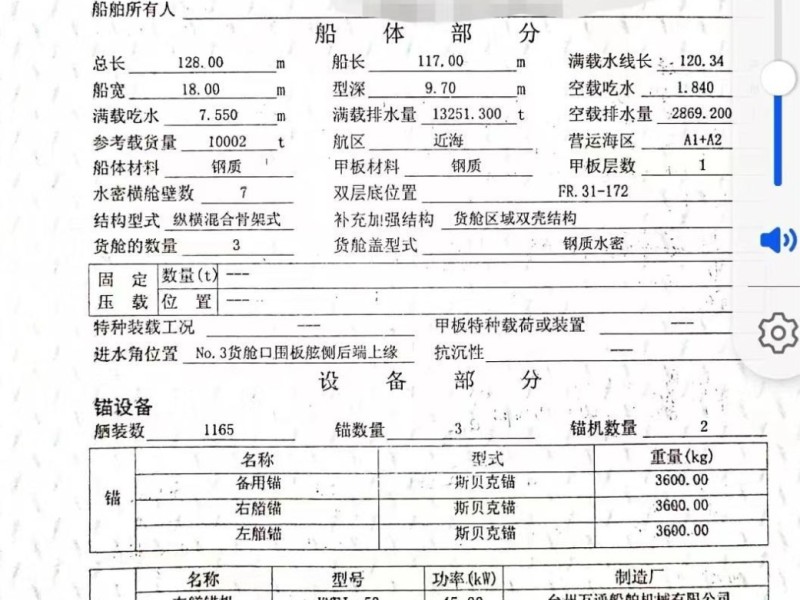 船舶所有人
船 体 部 分
总长 128.00 m 船长 117.00 m 满载水线长 120.34
船宽 18.00 m 型深 9.70 m 空载吃水 1.840
满载吃水 7.550 m 满载排水量 13251.300 t 空载排水量 2869.200
参考载货量 10002 t 航区 近海 营运海区 A1+A2
船体材料 钢质 甲板材料 钢质 甲板层数 1
水密横舱壁数 7 双层底位置 FR.31-172
结构型式 纵横混合骨架式 补充加强结构 货舱区域双壳结构
货舱的数量 3 货舱盖型式 钢质水密
固定压载 数量(t) ---
位置 ---
特种装载工况 --- 甲板特种载荷或装置 ---
进水角位置 No.3货舱口围板舷侧后端上缘 抗沉性 ---
设 备 部 分
锚设备
舾装数 1165 锚数量 3 锚机数量 2
锚 名称 型式 重量(kg)
备用锚 斯贝克锚 3600.00
右艏锚 斯贝克锚 3600.00
左艏锚 斯贝克锚 3600.00
名称 型号 功率(kW) 制造厂